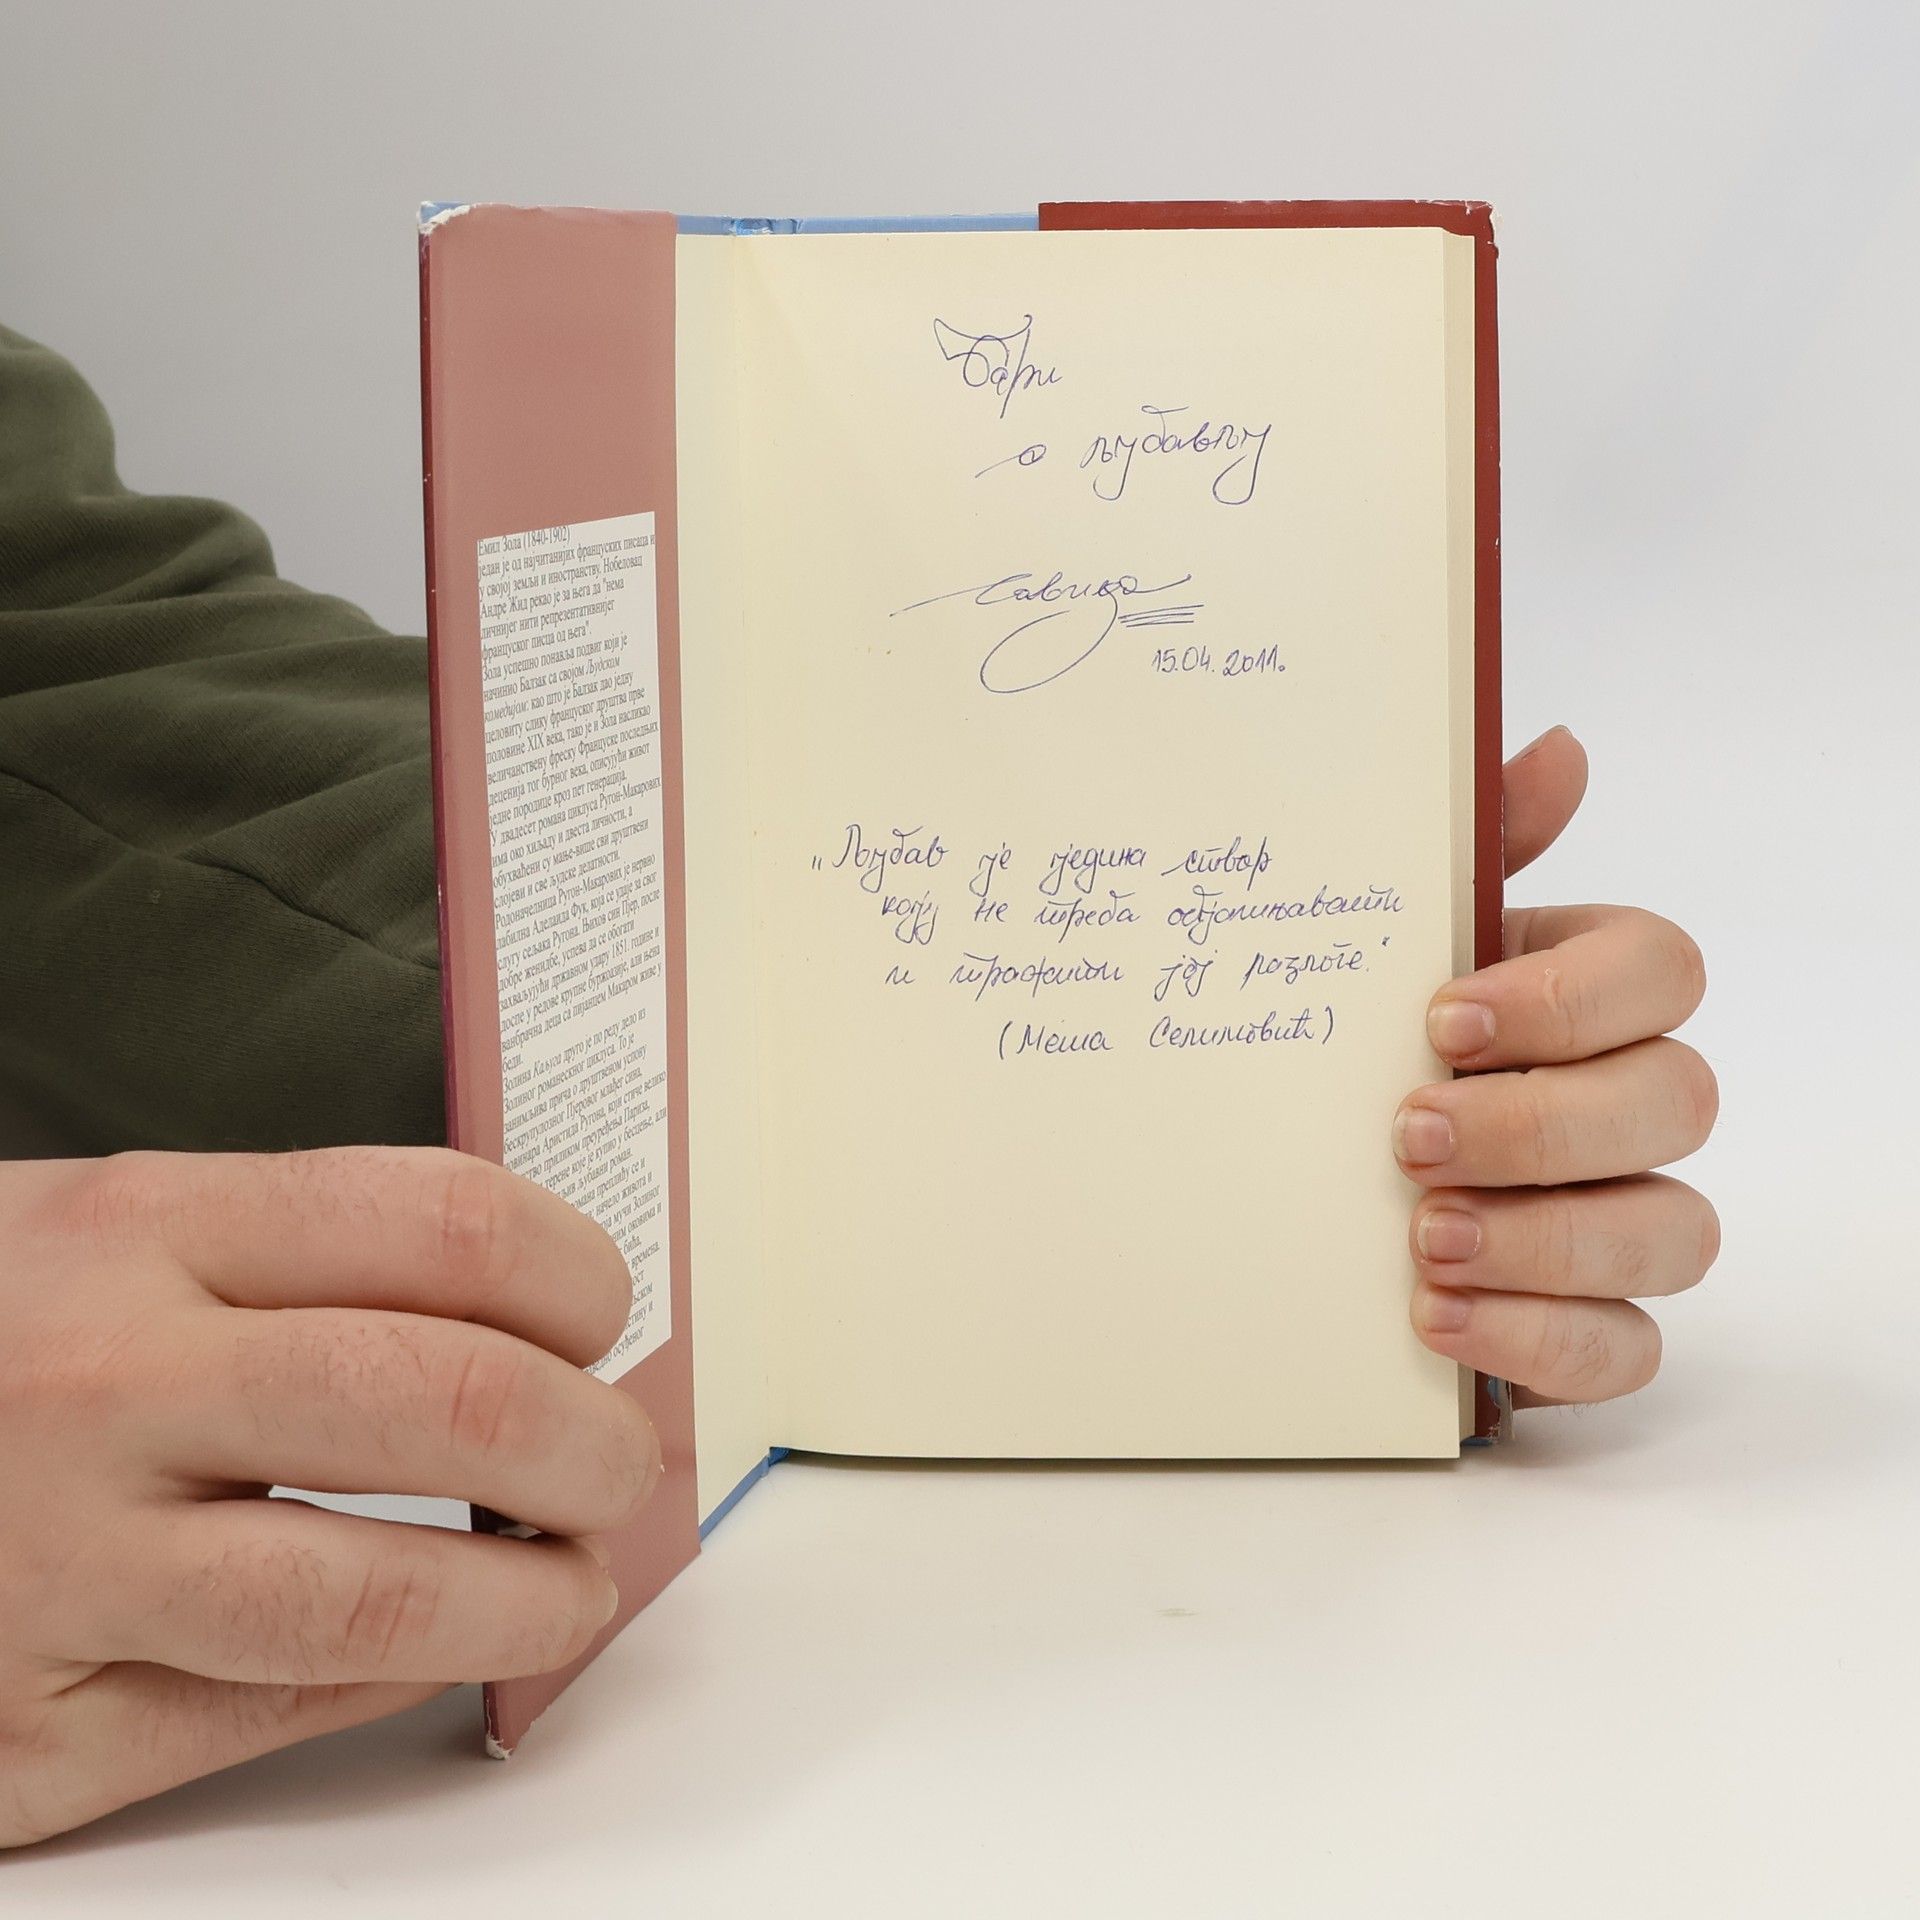 Емил Зола (1840-1902)
један је од најчитанијих француских писаца и
у својој земљи и иностранству. Нобеловац
Андре Жид рекао је за њега да "нема
личнијег нити репрезентативнијег
француског писца од њега".
Зола успешно понавља подвиг који је
начинио Балзак са својом Људском
комедијом: као што је Балзак дао једну
целовиту слику француског друштва прве
половине XIX века, тако је и Зола насликао
величанствену фреску Француске последњих
деценија тог бурног века, описујући живот
једне породице кроз пет генерација.
У двадесет романа циклуса Ругон-Макарових
има око хиљаду и двеста личности, а
обухваћени су мање-више сви друштвени
слојеви и све људске делатности.
Родоначелница Ругон-Макарових је нервно
лабилна Аделаида Фук, која се удаје за свог
слугу сељака Ругона. Њихов син Пјер, после
добре женидбе, успева да се обогати
захваљујући државном удару 1851. године и
доспе у редове крупне буржоазије, али њена
ванбрачна деца са пијанцем Макаром живе у
беди.
Золина Каљуга друго је по реду дело из
Золиног романескног циклуса. То је
занимљива прича о друштвеном успону
бескрупулозног Пјеровог млађег сина,
новинара Аристида Ругона, који стиче велико
приликом преуређења Париза,
терене које је купио у бесцење, али
љубавни роман.
преплићу се и
начело живота и
мучи Золиног
оковима и
бића,
времена.
осуђеног
Бари
о љубављу
Савица
15.04.2011.
„Љубав је једина ствар
коју не треба објашњавати
и тражити јој разлоге."
(Меша Селимовић)